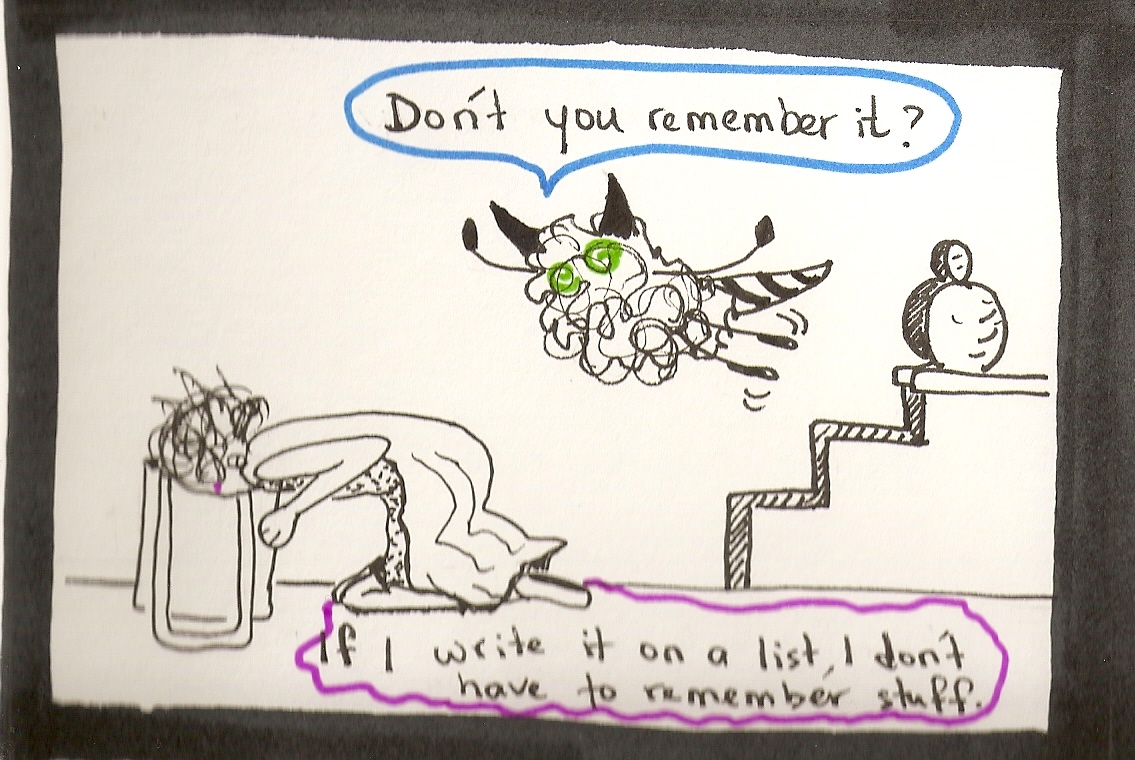 Don't you remember it?
If I write it on a list, I don't
have to remember stuff.